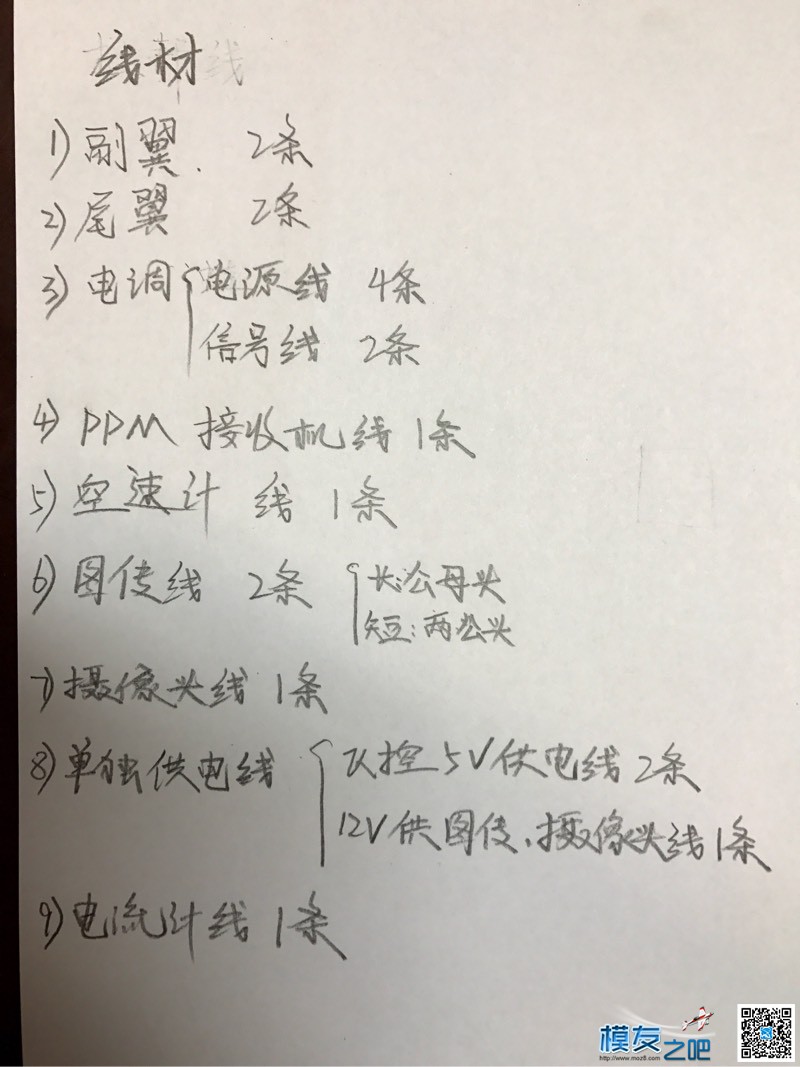 线材
1) 副翼. 2条
2) 尾翼 2条
3) 电调 { 电源线 4条
信号线 2条
4) PPM 接收机线 1条
5) 空速计 线 1条
6) 图传线 2条 { 长:公母头
短:两公头
7) 摄像头线 1条
8) 单独供电线 { 飞控5V供电线 2条
12V供图传、摄像头线 1条
9) 电流计线 1条
模友之吧
http://www.moz8.com